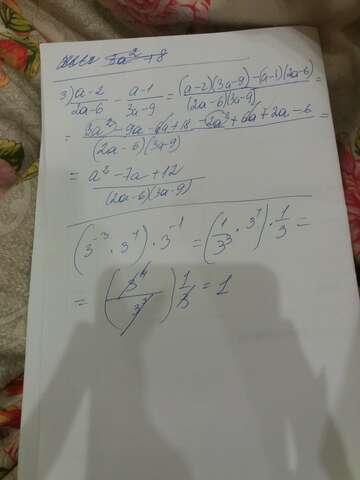 3a² + 8
3) a-2/2a-6 - a-1/3a-9 = (a-2)(3a-9)-(a-1)(2a-6)/(2a-6)(3a-9) =
= 3a²-9a-6a+18-2a²+6a+2a-6/(2a-6)(3a-9) =
= a²-7a+12/(2a-6)(3a-9)
(3⁻³ · 3⁴) · 3⁻¹ = (1/3³ · 3⁴) · 1/3 =
= (3⁴/3³) 1/3 = 1